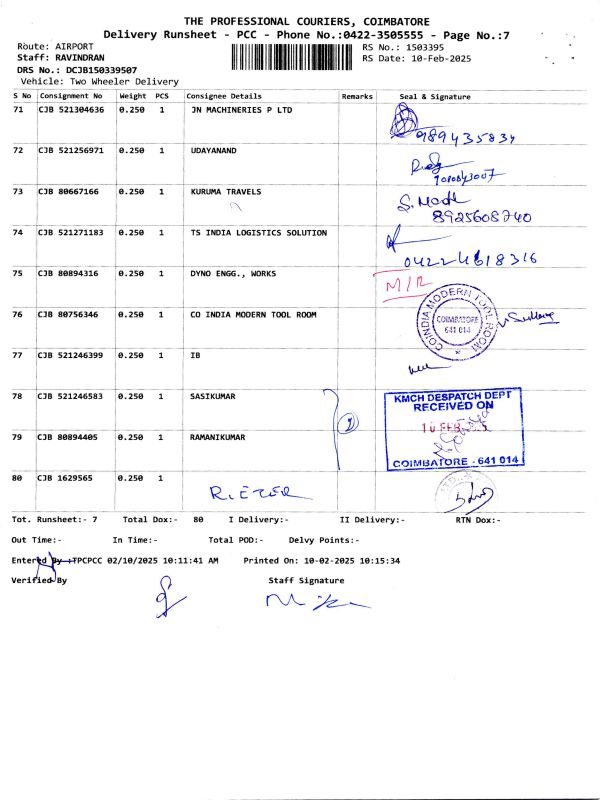 THE PROFESSIONAL COURIERS, COIMBATORE
Delivery Runsheet - PCC - Phone No.:0422-3505555 - Page No.:7
Route: AIRPORT RS No.: 1503395
Staff: RAVINDRAN RS Date: 10-Feb-2025
DRS No.: DCJB150339507
Vehicle: Two Wheeler Delivery
S No Consignment No Weight PCS Consignee Details Remarks Seal & Signature
71 CJB 521304636 0.250 1 JN MACHINERIES P LTD
989435834
72 CJB 521256971 0.250 1 UDAYANAND
73 CJB 80667166 0.250 1 KURUMA TRAVELS
8925608740
74 CJB 521271183 0.250 1 TS INDIA LOGISTICS SOLUTION
04224618316
75 CJB 80894316 0.250 1 DYNO ENGG., WORKS M/R
76 CJB 80756346 0.250 1 CO INDIA MODERN TOOL ROOM
COINDIA MODERN TOOL ROOM
COIMBATORE
641 014
77 CJB 521246399 0.250 1 IB
78 CJB 521246583 0.250 1 SASIKUMAR
KMCH DESPATCH DEPT
RECEIVED ON
79 CJB 80894405 0.250 1 RAMANIKUMAR
COIMBATORE - 641 014
80 CJB 1629565 0.250 1
Tot. Runsheet:- 7 Total Dox:- 80 I Delivery:- II Delivery:- RTN Dox:-
Out Time:- In Time:- Total POD:- Delvy Points:-
Entered By :TPCPCC 02/10/2025 10:11:41 AM Printed On: 10-02-2025 10:15:34
Verified By Staff Signature